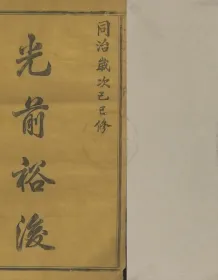 同治歲次己巳修
光前裕後